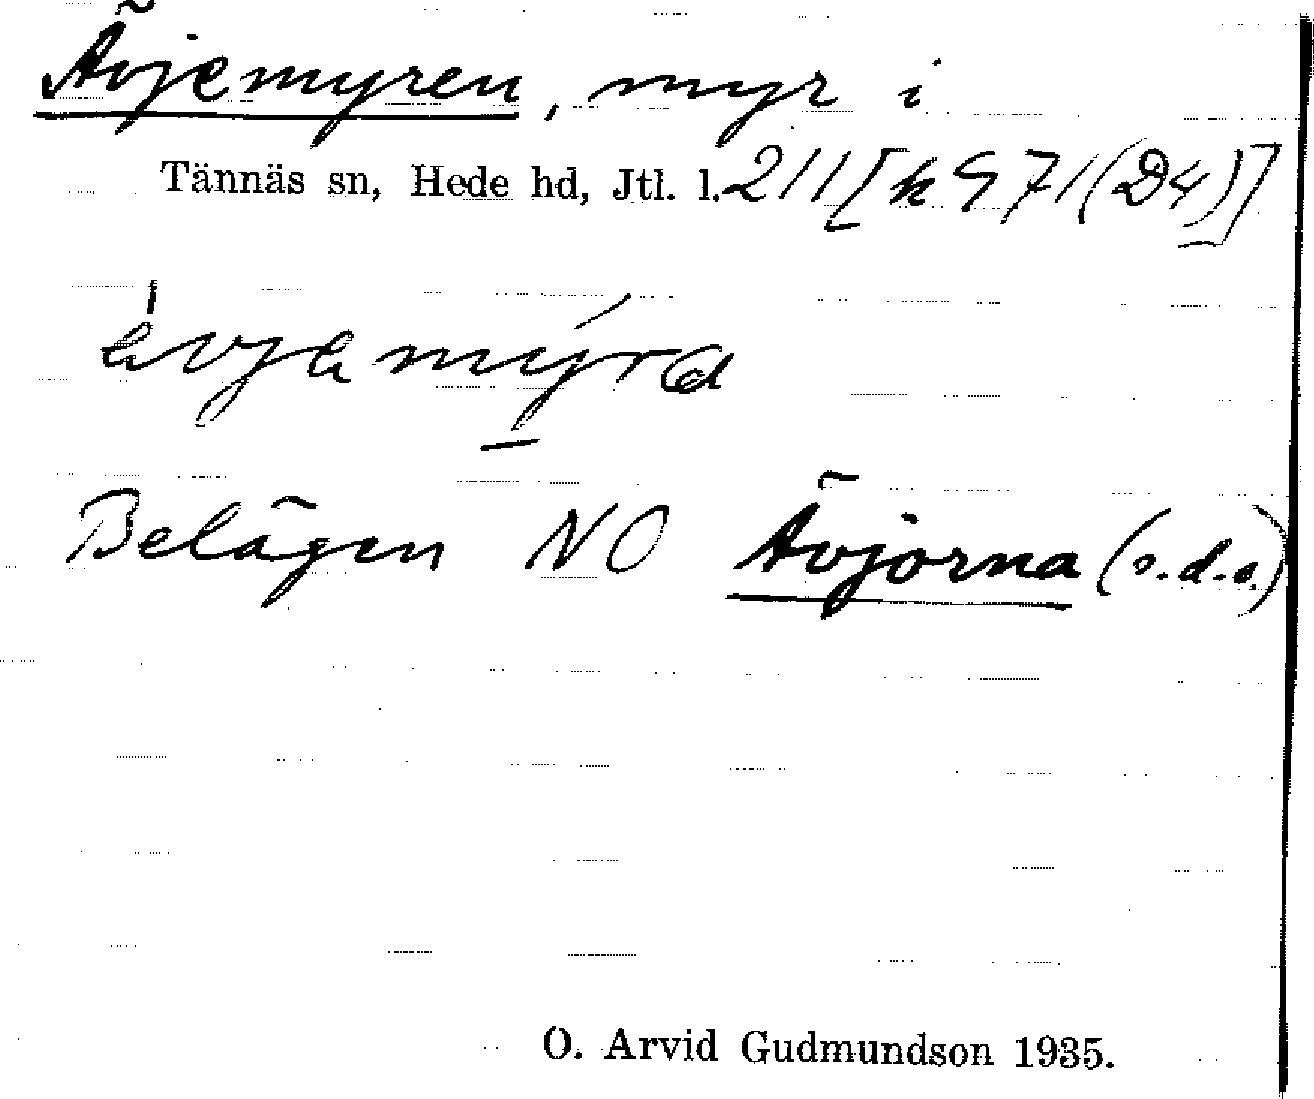 Ävjemyren, myr i
Tännäs sn, Hede hd, Jtl. l. 211[k 971(D4)]
Belägen NO Ävjorna (s.d.o.)
O. Arvid Gudmundson 1935.